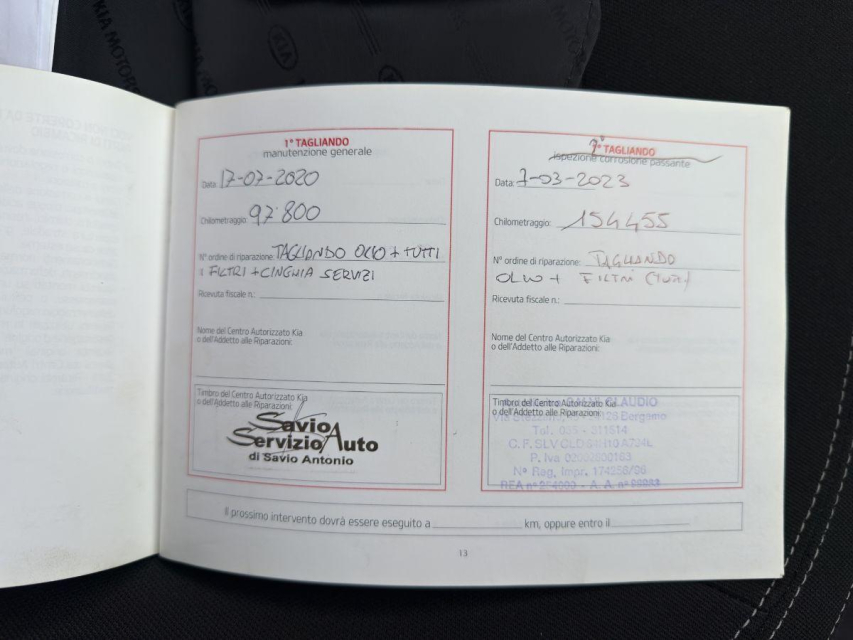 KIA MOTORS
KIA
1° TAGLIANDO
manutenzione generale
Data: 17-07-2020
Chilometraggio: 97.800
N° ordine di riparazione: TAGLIANDO OLIO + TUTTI
I FILTRI + CINGHIA SERVIZI
Ricevuta fiscale n.:
Nome del Centro Autorizzato Kia
o dell'Addetto alle Riparazioni:
Timbro del Centro Autorizzato Kia
o dell'Addetto alle Riparazioni:
Savio
Servizio Auto
di Savio Antonio
2° TAGLIANDO
ispezione corrosione passante
Data: 7-03-2023
Chilometraggio: 154455
N° ordine di riparazione: TAGLIANDO
OLIO + FILTRI
Ricevuta fiscale n.:
Nome del Centro Autorizzato Kia
o dell'Addetto alle Riparazioni:
Timbro del Centro Autorizzato Kia
o dell'Addetto alle Riparazioni:
CLAUDIO
Bergamo
Tel. 035 - 311514
C. F. SLV CLD
P. Iva
N° Reg. Impr.
REA n° - A. A. n°
Il prossimo intervento dovrà essere eseguito a km, oppure entro il
13